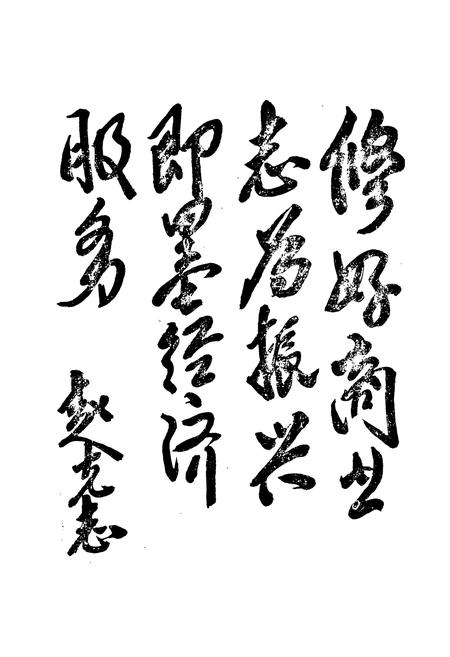 修好商业
志为振兴
即墨经济
服务
赵克志